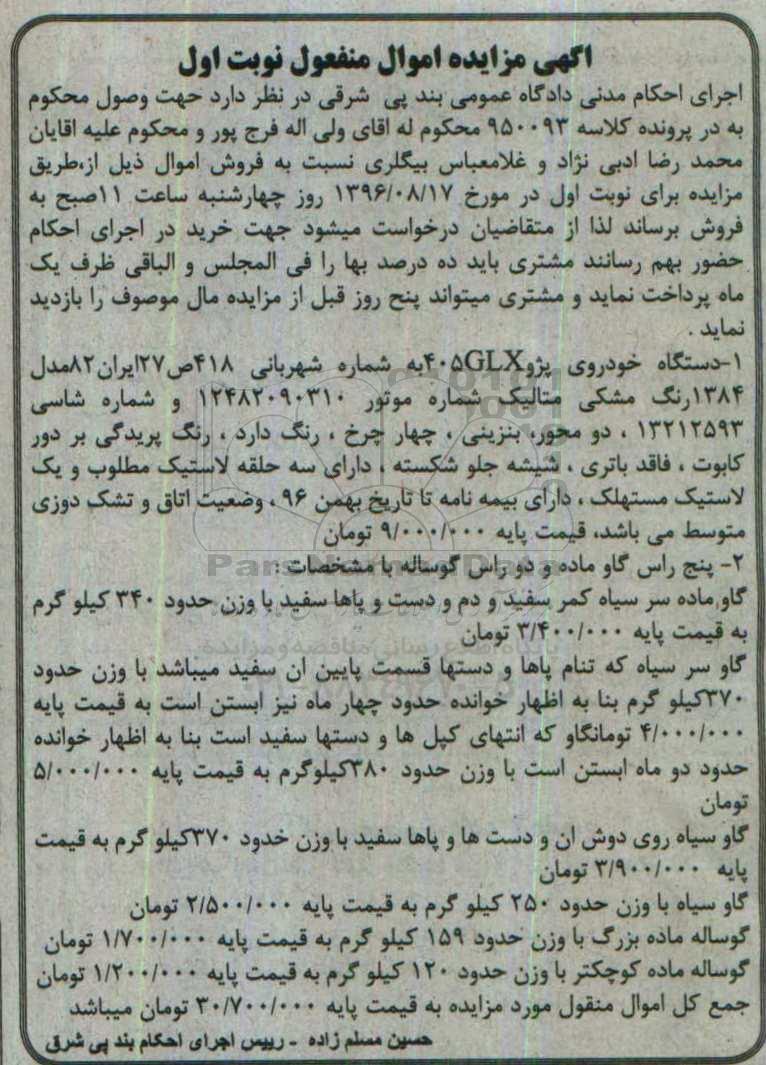 اگهی مزایده اموال منفعول نوبت اول
اجرای احکام مدنی دادگاه عمومی بند پی شرقی در نظر دارد جهت وصول محکوم
به در پرونده کلاسه ۹۵۰۰۹۳ محکوم له اقای ولی اله فرج پور و محکوم علیه اقایان
محمد رضا ادبی نژاد و غلامعباس بیگلری نسبت به فروش اموال ذیل از،طریق
مزایده برای نوبت اول در مورخ ۱۳۹۶/۰۸/۱۷ روز چهارشنبه ساعت ۱۱صبح به
فروش برساند لذا از متقاضیان درخواست میشود جهت خرید در اجرای احکام
حضور بهم رسانند مشتری باید ده درصد بها را فی المجلس و الباقی ظرف یک
ماه پرداخت نماید و مشتری میتواند پنح روز قبل از مزایده مال موصوف را بازدید
نماید .
۱-دستگاه خودروی پژو۴۰۵GLXبه شماره شهربانی ۴۱۸ص۲۷ایران۸۲مدل
۱۳۸۴رنگ مشکی متالیک شماره موتور ۱۲۴۸۲۰۹۰۳۱۰ و شماره شاسی
۱۳۲۱۲۵۹۳ ، دو محور، بنزینی ، چهار چرخ ، رنگ دارد ، رنگ پریدگی بر دور
کابوت ، فاقد باتری ، شیشه جلو شکسته ، دارای سه حلقه لاستیک مطلوب و یک
لاستیک مستهلک ، دارای بیمه نامه تا تاریخ بهمن ۹۶ ، وضعیت اتاق و تشک دوزی
متوسط می باشد، قیمت پایه ۹/۰۰۰/۰۰۰ تومان
۲- پنج راس گاو ماده و دو راس گوساله با مشخصات :
گاو ماده سر سیاه کمر سفید و دم و دست و پاها سفید با وزن حدود ۳۴۰ کیلو گرم
به قیمت پایه ۳/۴۰۰/۰۰۰ تومان
گاو سر سیاه که تنام پاها و دستها قسمت پایین ان سفید میباشد با وزن حدود
۳۷۰کیلو گرم بنا به اظهار خوانده حدود چهار ماه نیز ابستن است به قیمت پایه
۴/۰۰۰/۰۰۰ تومانگاو که انتهای کپل ها و دستها سفید است بنا به اظهار خوانده
حدود دو ماه ابستن است با وزن حدود ۳۸۰کیلوگرم به قیمت پایه ۵/۰۰۰/۰۰۰
تومان
گاو سیاه روی دوش ان و دست ها و پاها سفید با وزن خدود ۳۷۰کیلو گرم به قیمت
پایه ۳/۹۰۰/۰۰۰ تومان
گاو سیاه با وزن حدود ۲۵۰ کیلو گرم به قیمت پایه ۲/۵۰۰/۰۰۰ تومان
گوساله ماده بزرگ با وزن حدود ۱۵۹ کیلو گرم به قیمت پایه ۱/۷۰۰/۰۰۰ تومان
گوساله ماده کوچکتر با وزن حدود ۱۲۰ کیلو گرم به قیمت پایه ۱/۲۰۰/۰۰۰ تومان
جمع کل اموال منقول مورد مزایده به قیمت پایه ۳۰/۷۰۰/۰۰۰ تومان میباشد
حسین مسلم زاده - رییس اجرای احکام بند پی شرق